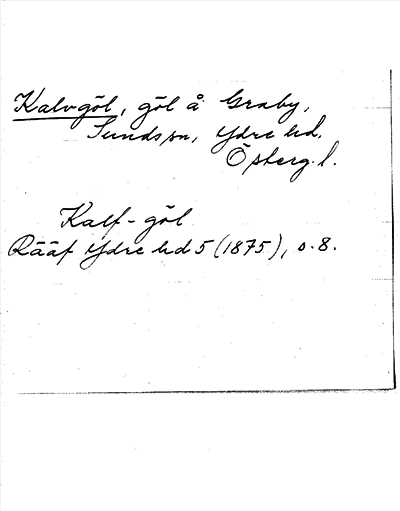 Kalvgöl, göl å Graby,
Sunds sn, Ydre hd.
Östergl.
Kalf-göl
Rääf Ydre hd 5 (1875), s. 8.